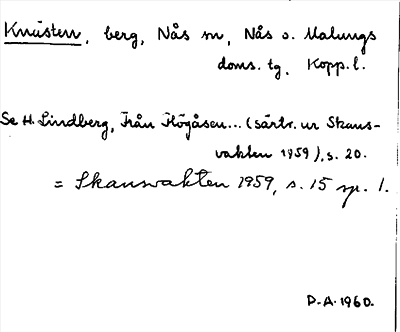 Knästen, berg, Nås sn, Nås o. Malungs
doms. tg, Kopp. l.
Se H. Lindberg, Från Högåsen... (särtr. ur Skans-
vakten 1959), s. 20.
= Skansvakten 1959, s. 15 sp. 1.
D-A. 1960.